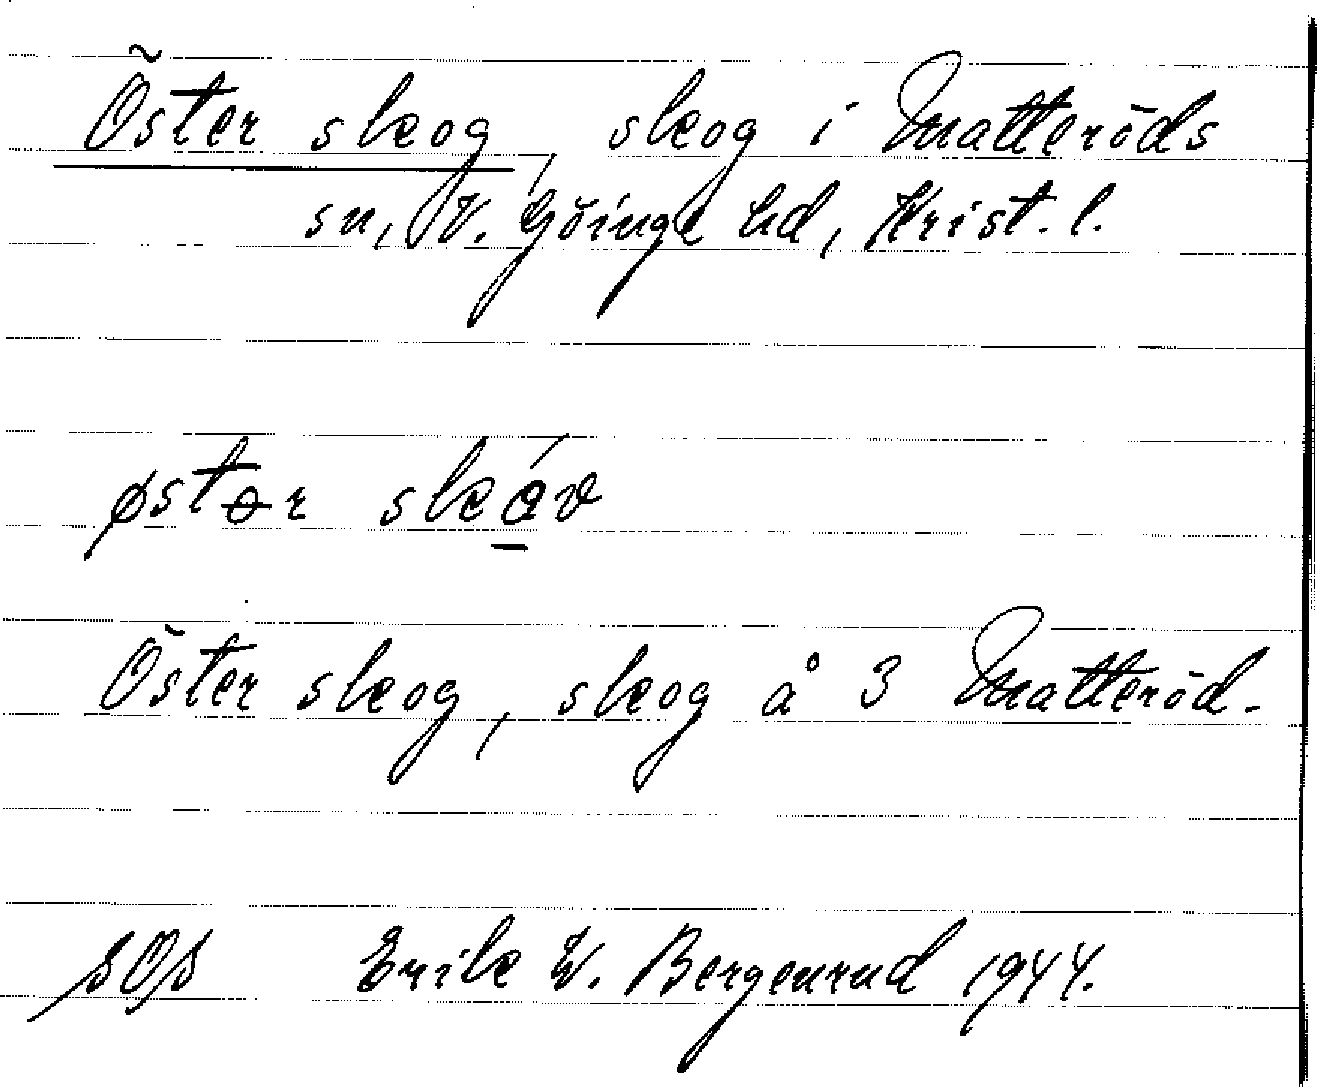 Öster skog, skog i Matteröds
sn, V. Göinge hd, Krist. l.
østər skóv
Öster skog, skog å 3 Matteröd.
SOS Erik W. Bergenrud 1944.